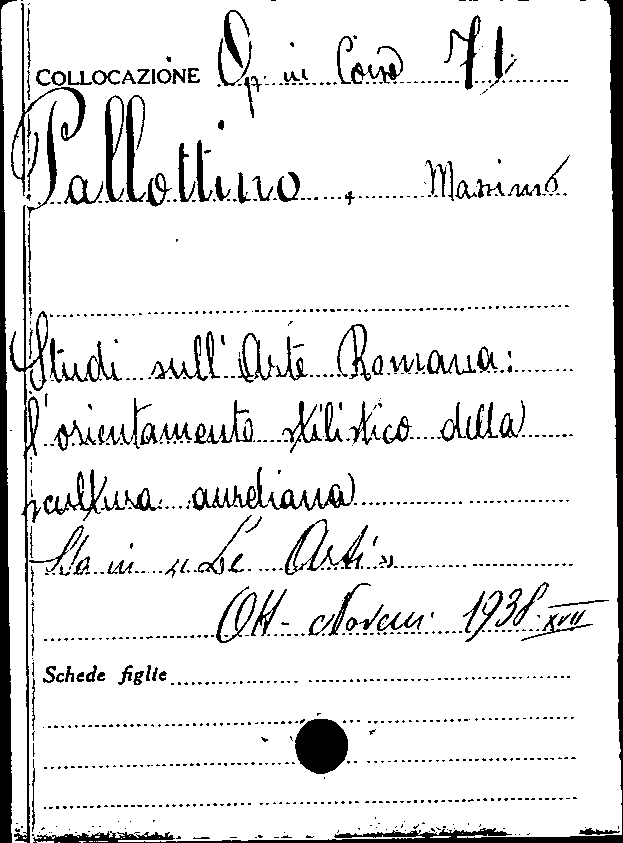 COLLOCAZIONE Op. in Corso 71
Pallottino, Massimo
Studi sull'Arte Romana:
l'orientamento stilistico della
scultura aureliana
Sta in «Le Arti»
Ott-Novem. 1938.XVII
Schede figlie